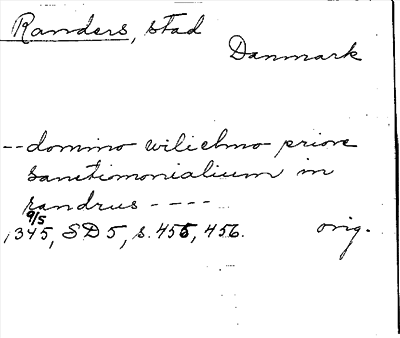 Randers, stad
Danmark
-- domino wilielmo priore
sanctimonialium in
randrus ----
9/5
1345, SD 5, s. 455, 456. orig.